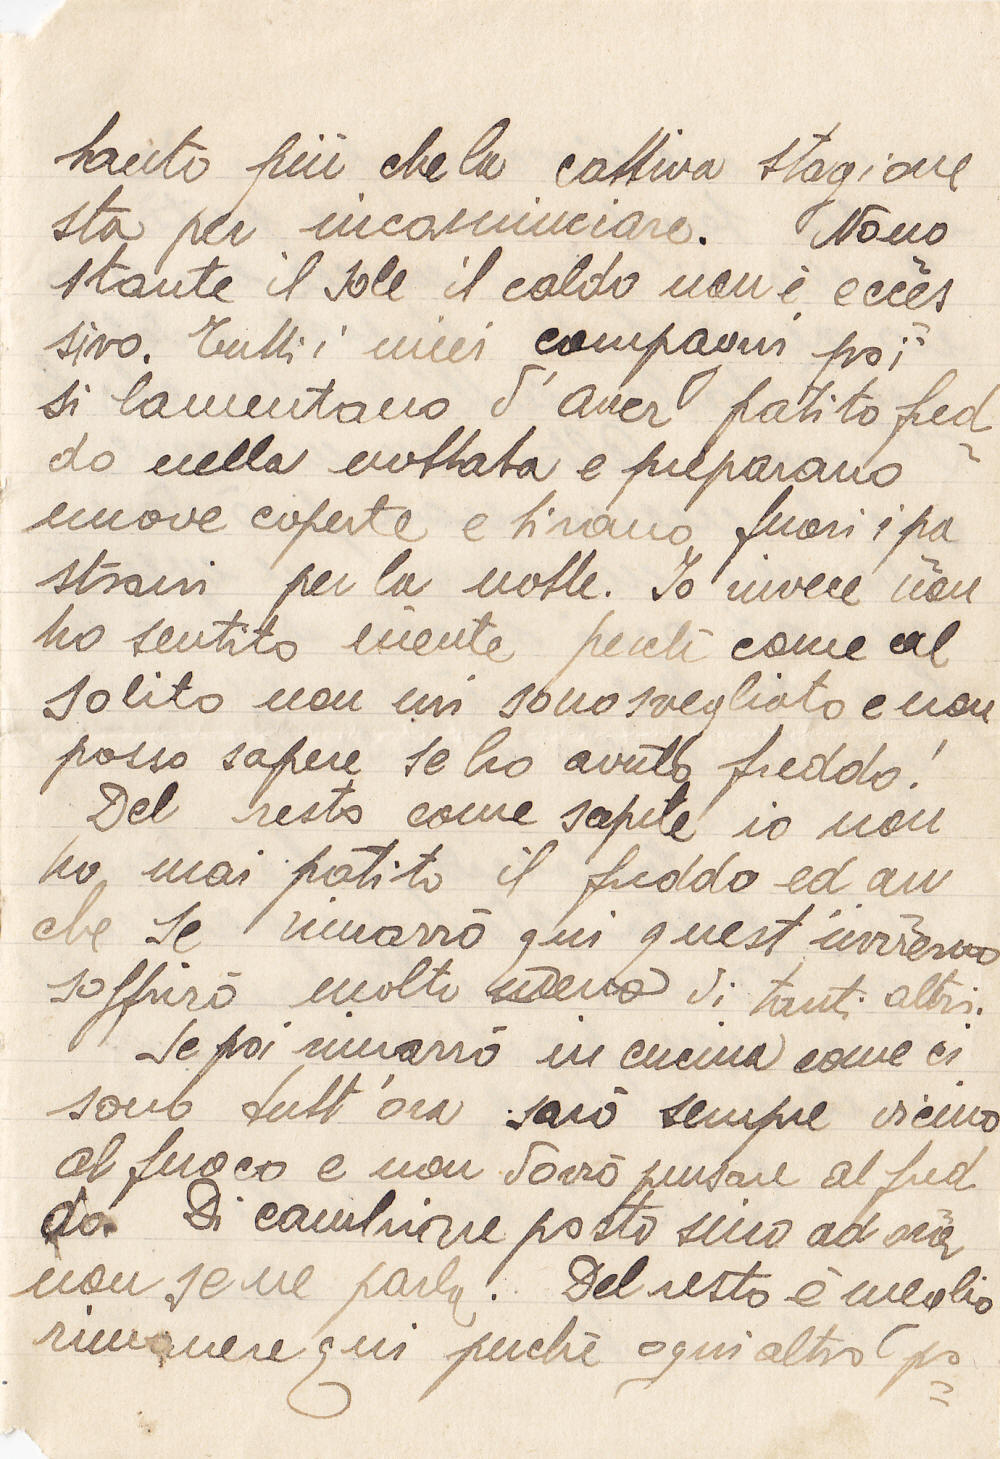 tanto più che la cattiva stagione
sta per incominciare. Nono
stante il sole il caldo non è ecces
sivo. Tutti i miei compagni poi
si lamentano d'aver patito fred
do nella nottata e preparano
nuove coperte e tirano fuori i pa
strani per la notte. Io invece non
ho sentito niente perché come al
solito non mi sono svegliato e non
posso sapere se ho avuto freddo!
Del resto come sapete io non
ho mai patito il freddo ed an
che se rimarrò qui quest'inverno
soffrirò molto meno di tanti altri.
Se poi rimarrò in cucina come ci
sono tutt'ora sarò sempre vicino
al fuoco e non dovrò pensare al fred
do. Di cambiare posto sino ad ora
non se ne parla. Del resto è meglio
rimanere qui perchè ogni altro po=